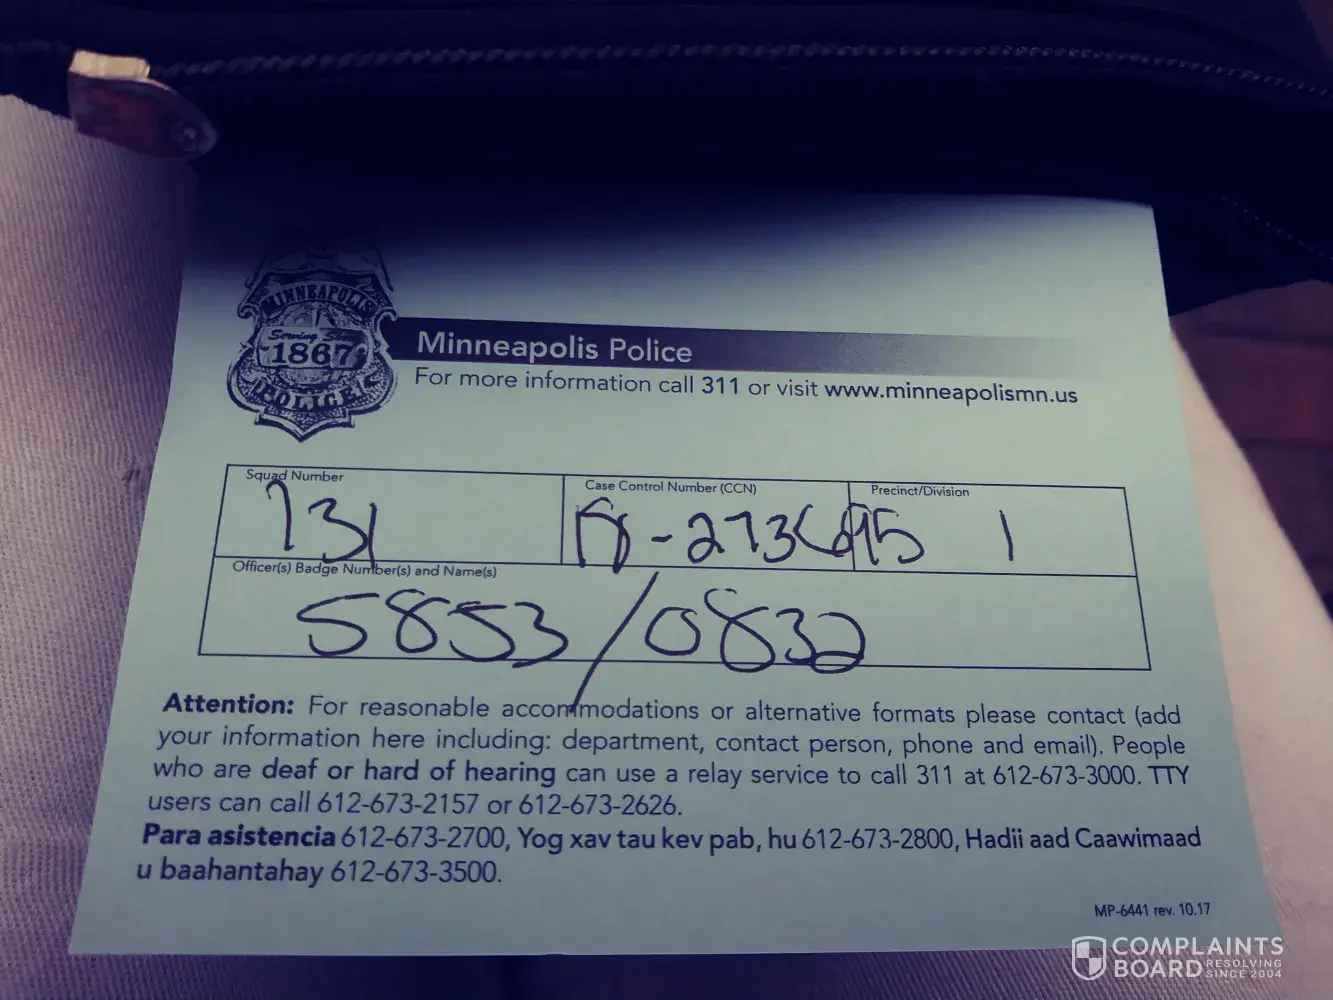 MINNEAPOLIS
1867
POLICE
Minneapolis Police
For more information call 311 or visit www.minneapolismn.us
Squad Number Case Control Number (CCN) Precinct/Division
131 18-273695 1
Officer(s) Badge Number(s) and Name(s)
5853/0832
Attention: For reasonable accommodations or alternative formats please contact (add
your information here including: department, contact person, phone and email). People
who are deaf or hard of hearing can use a relay service to call 311 at 612-673-3000. TTY
users can call 612-673-2157 or 612-673-2626.
Para asistencia 612-673-2700, Yog xav tau kev pab, hu 612-673-2800, Hadii aad Caawimaad
u baahantahay 612-673-3500.
MP-6441 rev. 10.17
COMPLAINTS
BOARD RESOLVING
SINCE 2004